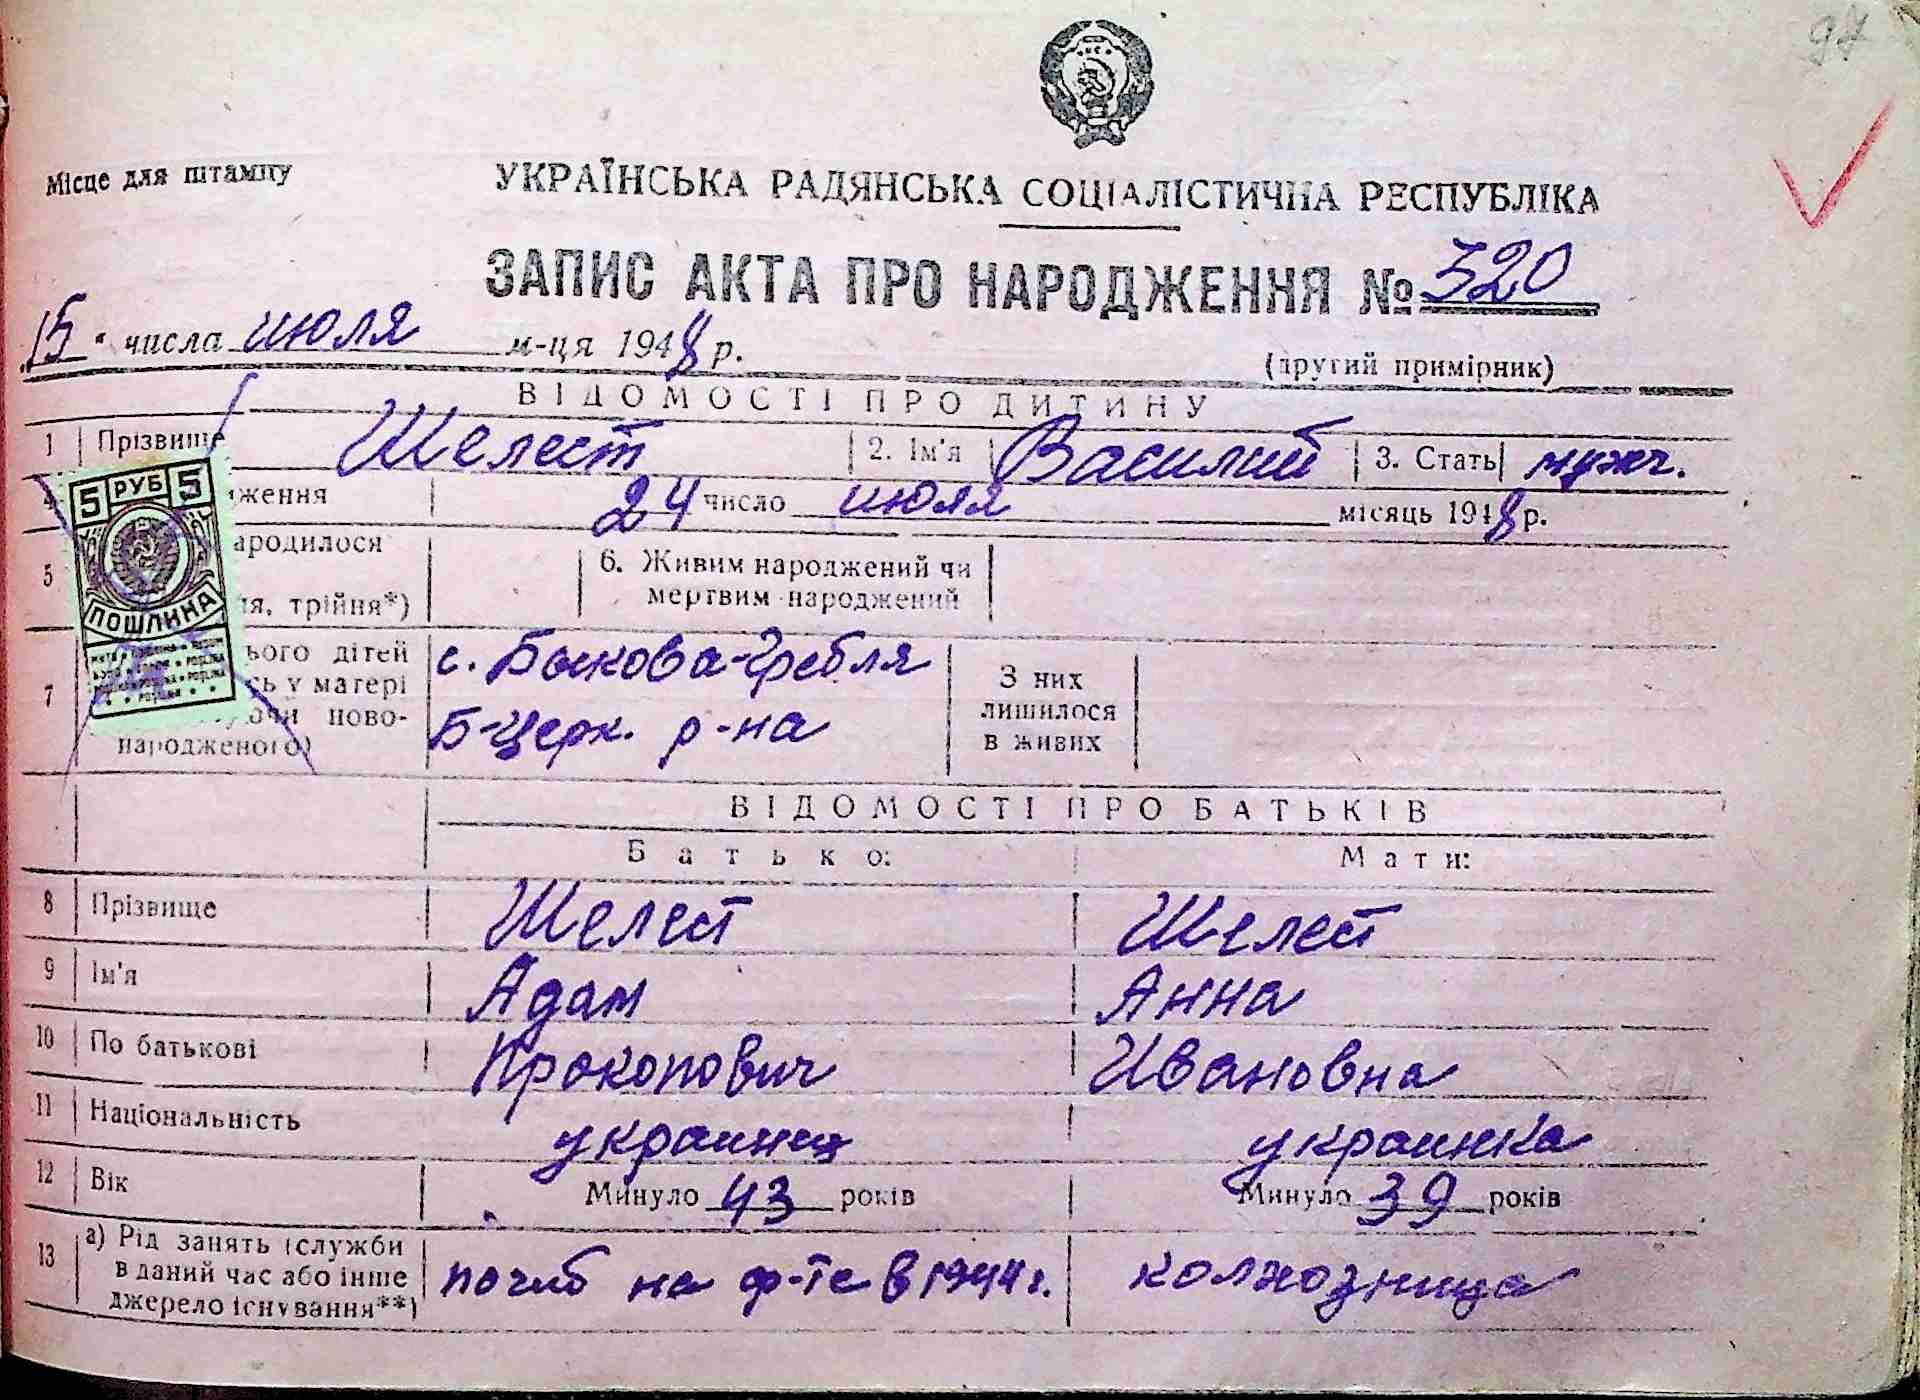 97
Місце для штампу
УКРАЇНСЬКА РАДЯНСЬКА СОЦІАЛІСТИЧНА РЕСПУБЛІКА
ЗАПИС АКТА ПРО НАРОДЖЕННЯ № 320
15 " числа июля м-ця 1948 р.
(другий примірник)
ВІДОМОСТІ ПРО ДИТИНУ
1 Прізвище Шелест 2. Ім'я Василий 3. Стать мужч.
4 ження 24 число июля місяць 1948 р.
5 ародилося
ня, трійня*)
6. Живим народжений чи мертвим народжений
5 РУБ 5
ПОШЛИНА
7 ього дітей
сь у матері
ючи ново-
народженого)
с. Быкова-Гребля
Б-Церк. р-на
З них
лишилося
в живих
ВІДОМОСТІ ПРО БАТЬКІВ
Батько: Мати:
8 Прізвище Шелест Шелест
9 Ім'я Адам Анна
10 По батькові Прокопович Ивановна
11 Національність украинец украинка
12 Вік Минуло 43 років Минуло 39 років
13 а) Рід занять (служби
в даний час або інше
джерело існування**)
погиб на ф-те в 1944 г. колхозница